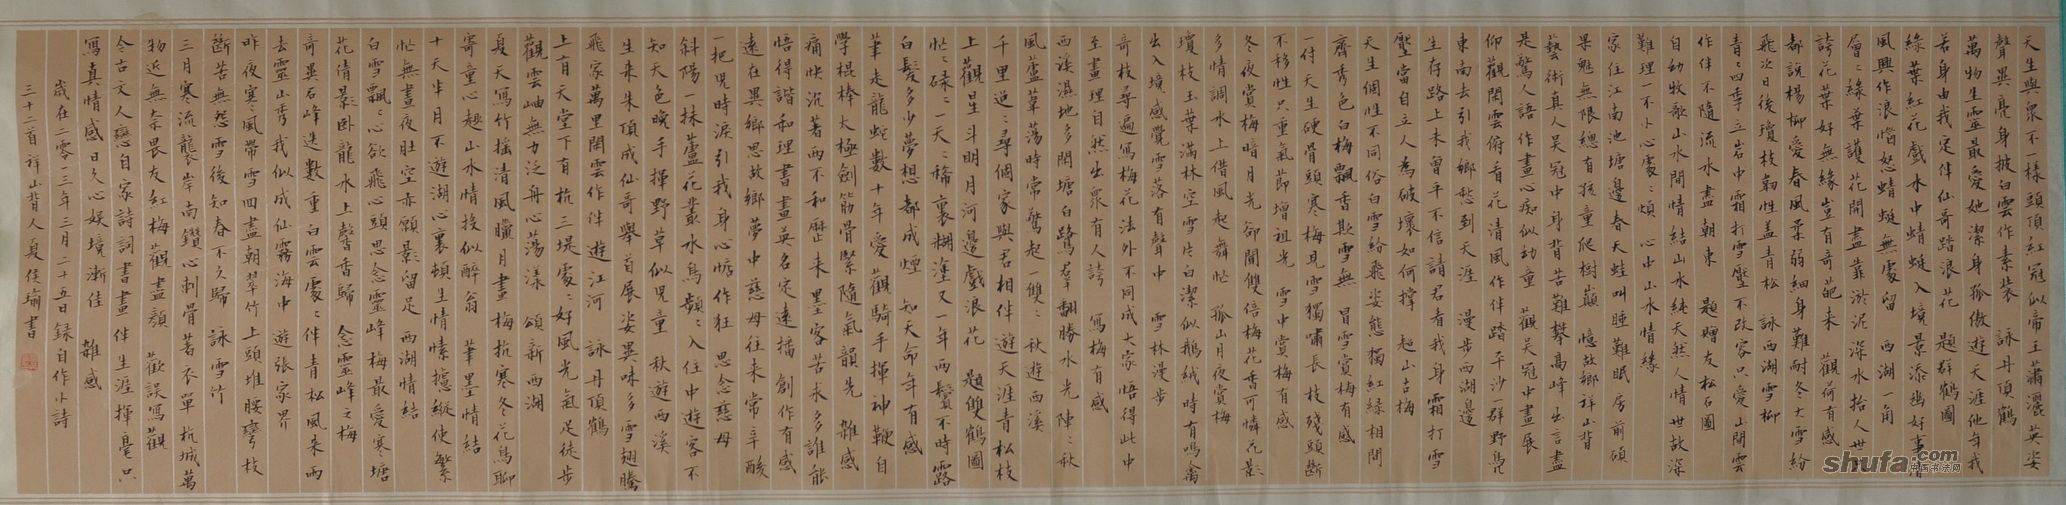 天生與眾不一樣頭頂紅冠似帝王蕭灑英姿
聲異亮身披白雲作素裝 詠丹頂鶴
萬物生靈最愛她潔身孤傲遊天涯他年我
若身由我定伴仙哥踏浪花 題群鶴圖
綠葉紅花戲水中蜻蜓入境景添幽好事清
風興作浪惱怒蜻蜓無處留 西湖一角
層層綠葉護花開盡靠淤泥深水抬人世
誇花葉好無緣豈有奇葩来 觀荷有感
都說楊柳愛春風柔弱細身難耐冬大雪紛
飛次日後瓊枝韌性盖青松 詠西湖雪柳
青青四季立岩中霜打雪壓不改容只愛山間雲
作伴不隨流水盡朝東 題贈友松石圖
自幼牧歌山水間情結山水純天然人情世故深
難理一不卜心處處煩 心中山水情緣
家住江南池塘邊春天蛙叫睡難眠房前碩
果魁無限總有孩童爬樹巔 憶故鄉祥山背
藝術真人吳冠中身背苦難攀高峰出言盡
是驚人語作畫心痴似幼童 觀吳冠中畫展
仰觀閑雲俯看花清風作伴踏平沙一群野鳧
東南去引我鄉愁到天涯 漫步西湖邊
生存路上未曾平不信請君看我身霜打雪
壓當自立人為破壞如何撑 超山古梅
天生個性不同俗白雪給飛姿態獨紅綠相間
齊秀色白梅飄香欺雪無 冒雪賞梅有感
一付天生硬骨頭寒梅見雪獨嘯長枝殘頭斷
不移性只重氣節增祖光 雪中賞梅有感
冬夜賞梅暗月光卻聞雙倍梅花香可憐花影
多情調水上借風起舞忙 孤山月夜賞梅
瓊枝玉葉滿林空雪片白潔似鵝絨時有鳴禽
出入境感覺雪落有聲中 雪林漫步
奇枝尋遍寫梅花法外不同成大家悟得此中
至畫理自然出眾有人誇 寫梅有感
西溪濕地多閑塘白鷺羣翻勝水光陣陣秋
風蘆葦蕩時常驚起一雙雙 秋遊西溪
千里迢迢尋個家與君相伴遊天涯青松枝
上觀星斗明月河邊戲浪花 題雙鶴圖
忙忙碌碌一天天稀裏糊塗又一年两鬢不時露
白髮多少夢想都成煙 知天命年有感
筆走龍蛇數十年愛觀騎手揮神鞭自
學棍棒太極劍筋骨緊隨氣韻先 雜感
痛快沉著两不和歷来墨客苦求多誰能
悟得諧和理書畫英名定遠播 創作有感
遠在異鄉思故鄉夢中慈母往来常辛酸
一把兒時淚引我身心惦作狂 思念慈母
斜陽一抹蘆花叢水鳥顫顫入住中遊客不
知天色晚手揮野草似兒童 秋遊西溪
生来朱頂成仙哥舉首展姿異味多雪翅騰
飛家萬里閑雲作伴遊江河 詠丹頂鶴
上有天堂下有杭三堤處處好風光氣足徒步
觀雲岫無力泛舟心蕩漾 頌新西湖
夏天寫竹搖清風臘月畫梅抗寒冬花鳥聊
寄童心趣山水情投似醉翁 筆墨情結
十天半月不遊湖心裏頓生情愫攄縱使繁
忙無晝夜肚空亦願影留足 西湖情結
白雪飄飄心欲飛心頭思念靈峰梅最愛寒塘
花倩影卧龍水上馨香歸 念靈峰之梅
奇異石峰迭數重白雲處處伴青松風来雨
去靈山秀我似成仙霧海中 遊張家界
昨夜寒風帶雪四畫朝翠竹上頭堆腰彎枝
斷苦無怨雪後知春不久歸 詠雪竹
三月寒流襲岸南鑽心刺骨著衣單杭城萬
物近無奈畏友紅梅觀盡顏 歡誤寫觀
今古文人戀自家詩詞書畫伴生涯揮毫只
寫真情感日久心娱境漸佳 雜感
歲在二零一三年三月二十五日録自作小詩
三十二首祥山背人夏侯瑜書
shufa.com
中国书法网